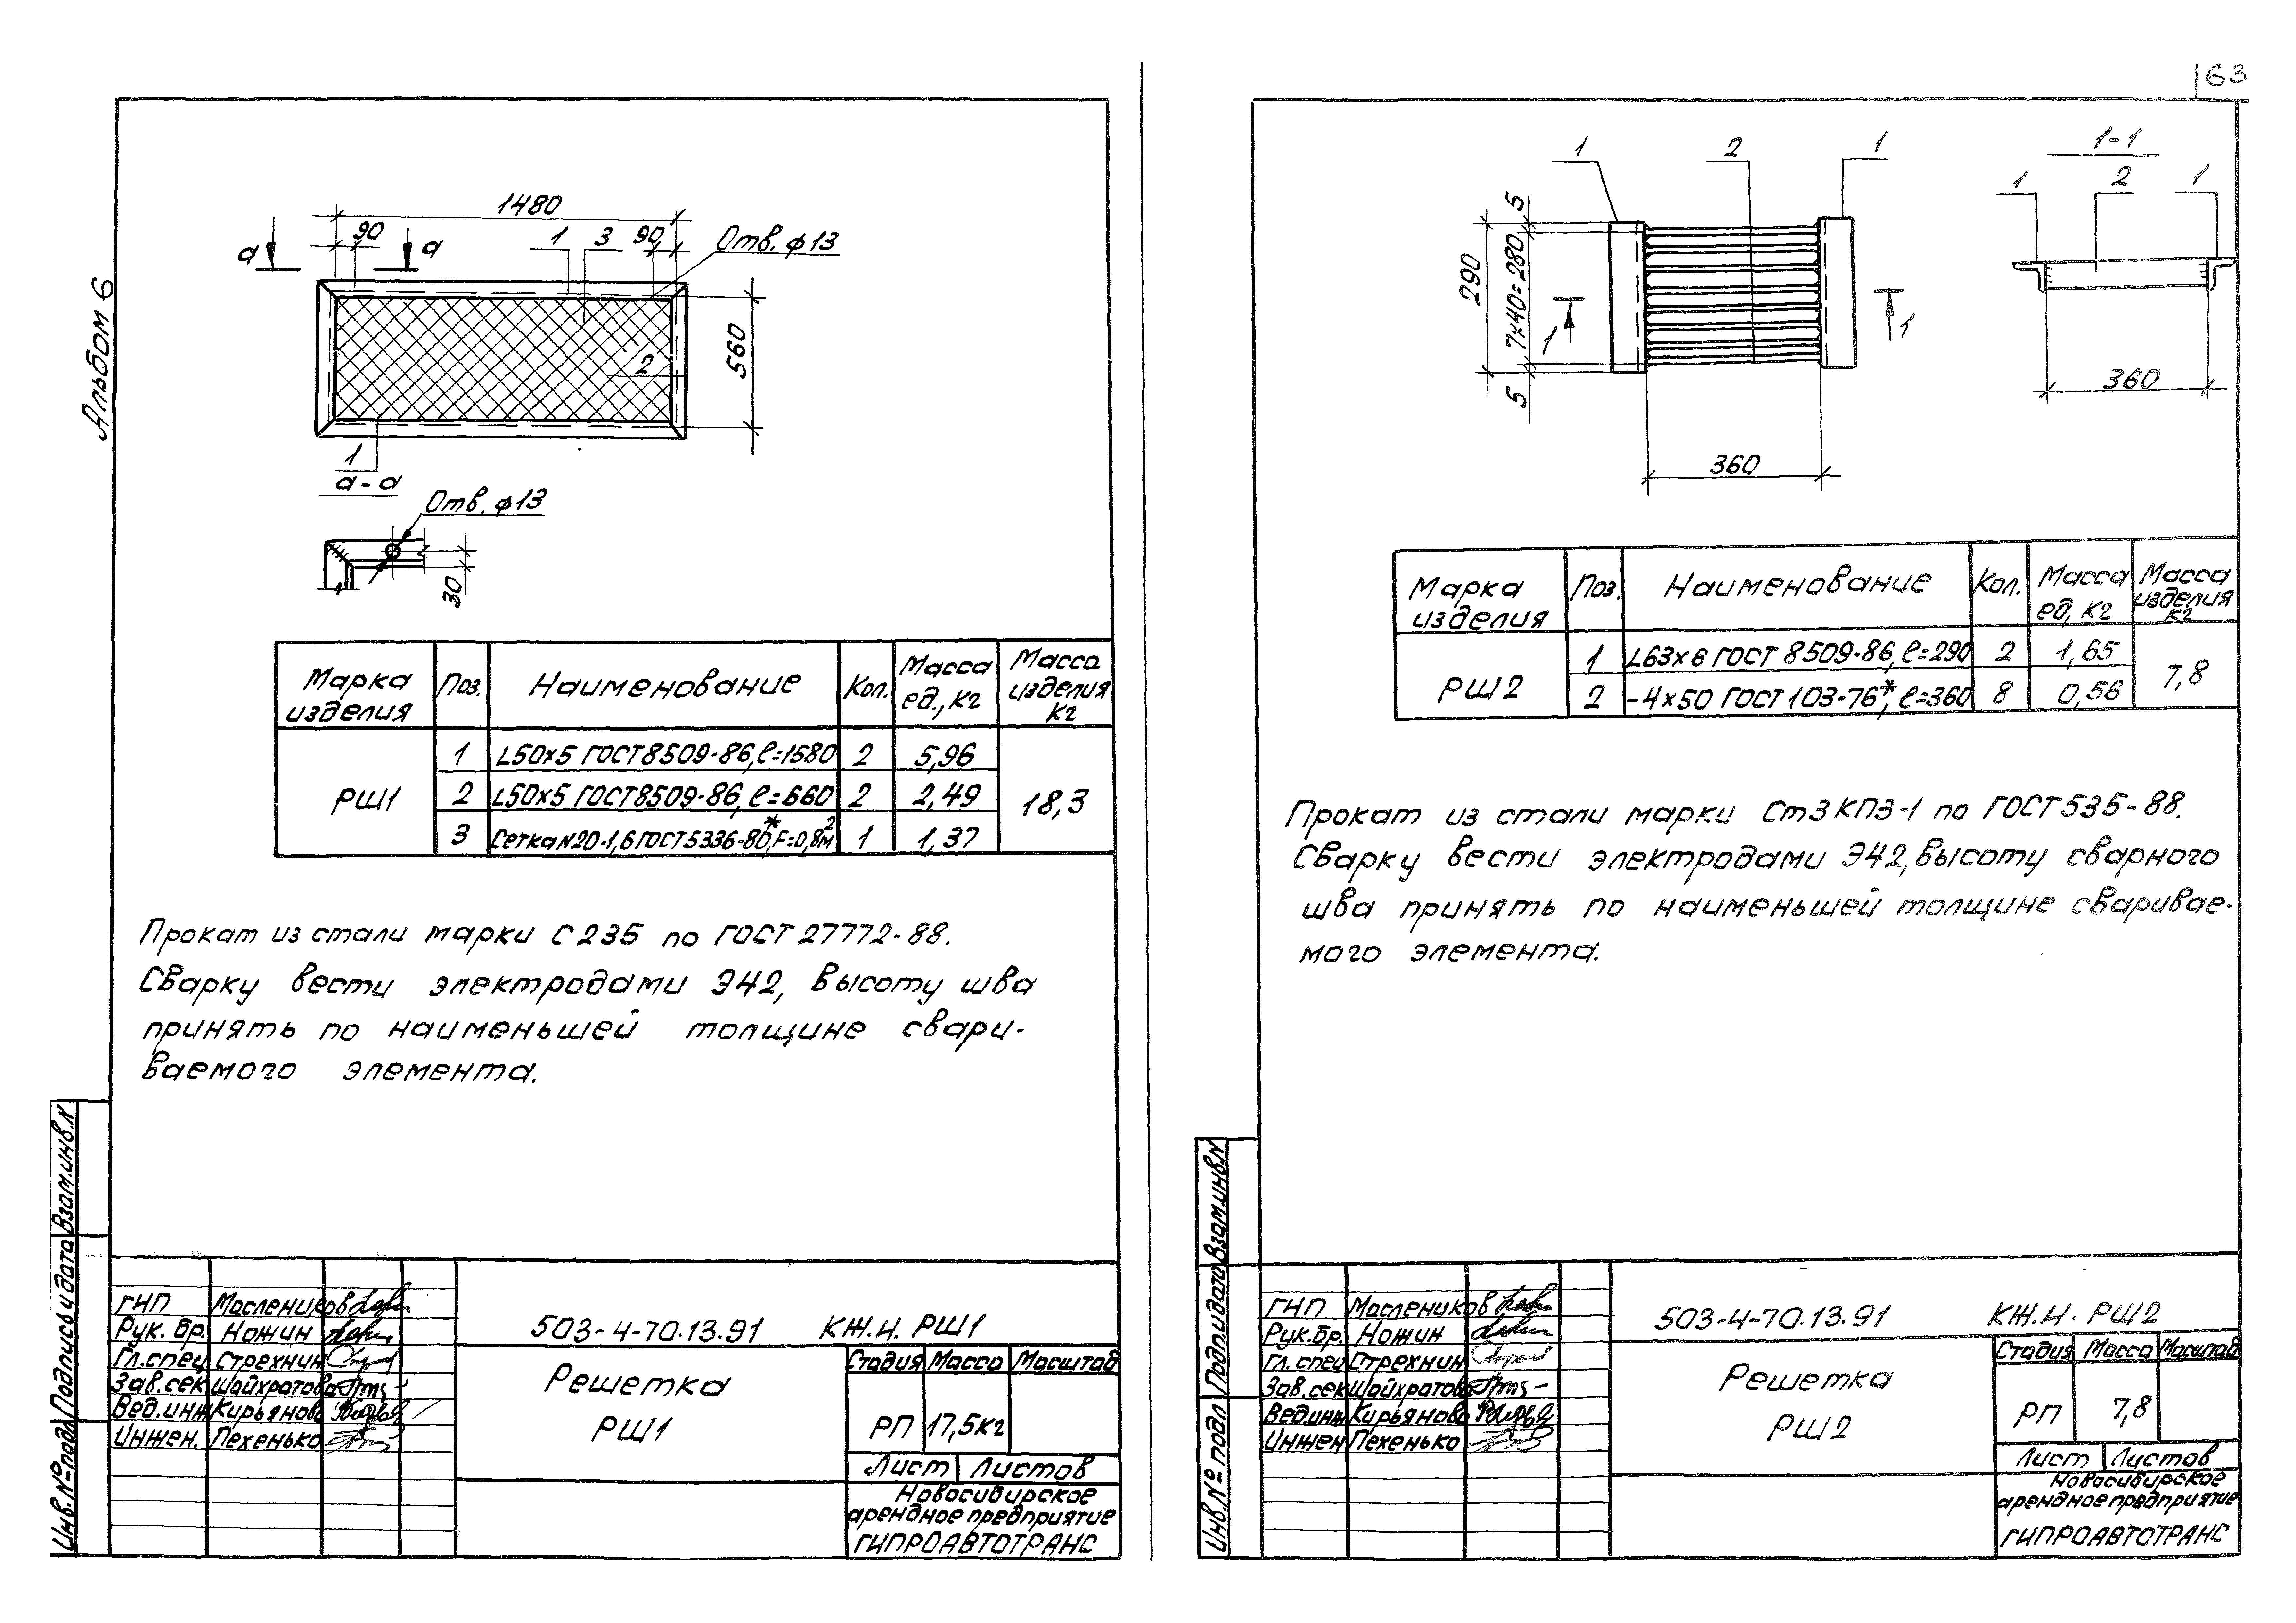 63
Альбом 6
1480
90
1
3
90
Отв. ф13
а
а
560
2
1
а-а
Отв. ф13
30
Марка изделия
Поз.
Наименование
Кол.
Масса ед., кг
Масса изделия кг
РШ1
1
L50х5 ГОСТ 8509-86, ℓ=1580
2
5,96
18,3
2
L50х5 ГОСТ 8509-86, ℓ=660
2
2,49
3
Сетка N20-1,6 ГОСТ 5336-80*, F=0,8м²
1
1,37
Прокат из стали марки С 235 по ГОСТ 27772-88.
Сварку вести электродами Э42, высоту шва
принять по наименьшей толщине свари-
ваемого элемента.
Инв. № подл
Подпись и дата
Взам.инв.N
ГИП Маслеников
Рук. бр. Ножин
Гл.спец Стрехнин
Зав.сек Шайхратова
Вед.инж Кирьянова
Инжен. Пехенько
503-4-70.13.91 КЖ.И. РШ1
Решетка
РШ1
Стадия Масса Масштаб
РП 17,5кг
Лист Листов
Новосибирское
арендное предприятие
ГИПРОАВТОТРАНС
1
2
1
5
290
7х40=280
5
1
1
360
1-1
1
2
1
360
Марка изделия
Поз.
Наименование
Кол.
Масса ед, кг
Масса изделия кг
РШ2
1
L63х6 ГОСТ 8509-86, ℓ=290
2
1,65
7,8
2
-4х50 ГОСТ 103-76*, ℓ=360
8
0,56
Прокат из стали марки Ст3КП3-1 по ГОСТ 535-88.
Сварку вести электродами Э42, высоту сварного
шва принять по наименьшей толщине сваривае-
мого элемента.
Инв. № подл
Подп.и дата
Взам.инв.N
ГИП Маслеников
Рук.бр. Ножин
Гл.спец Стрехнин
Зав.сек Шайхратова
Вед.инж Кирьянова
Инжен Пехенько
503-4-70.13.91 КЖ.И. РШ2
Решетка
РШ2
Стадия Масса Масштаб
РП 7,8
Лист Листов
Новосибирское
арендное предприятие
ГИПРОАВТОТРАНС